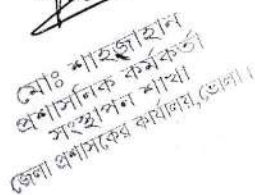 মোঃ শাহজাহান
প্রশাসনিক কর্মকর্তা
সংস্থাপন শাখা
জেলা প্রশাসকের কার্যালয়, ভোলা।